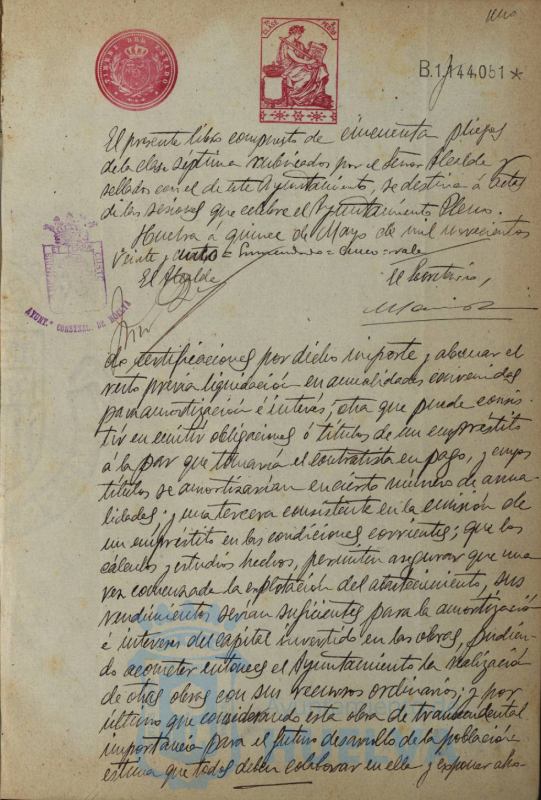 TIMBRE DEL ESTADO
CLASE 7ª PESO
B.1,144,051*
El presente libro compuesto de cincuenta pliegos
de la clase séptima rubricados por el Señor Alcalde y
sellados con el de este Ayuntamiento, se destina á actas
de las sesiones que celebre el Ayuntamiento Pleno.
Huelva á quince de Mayo de mil novecientos
veinte y cinco = Enmendado = cinco = vale
El Alcalde El Secretario,
AYUNT.º CONSTNAL. DE HUELVA
do certificaciones por dicho importe y abonar el
resto prévia liquidación en anualidades convenidas
para amortización é interés; otra que puede consis-
tir en emitir obligaciones ó títulos de un empréstito
á la par que tomaría el contratista en pago, y cuyos
títulos se amortizarían en cierto número de anua-
lidades; y una tercera consistente en la emisión de
un empréstito en las condiciones corrientes; que los
cálculos y estudios hechos, permiten asegurar que una
vez comenzada la explotación del abastecimiento, sus
rendimientos serían suficientes para la amortización
é intereses del capital invertido en las obras, pudien-
do acometer entonces el Ayuntamiento la realización
de otras obras con sus recursos ordinarios; y por
último que considerando esta obra de transcendental
importancia para el futuro desarrollo de la población
estima que todos deben colaborar en ella y exponer aho-